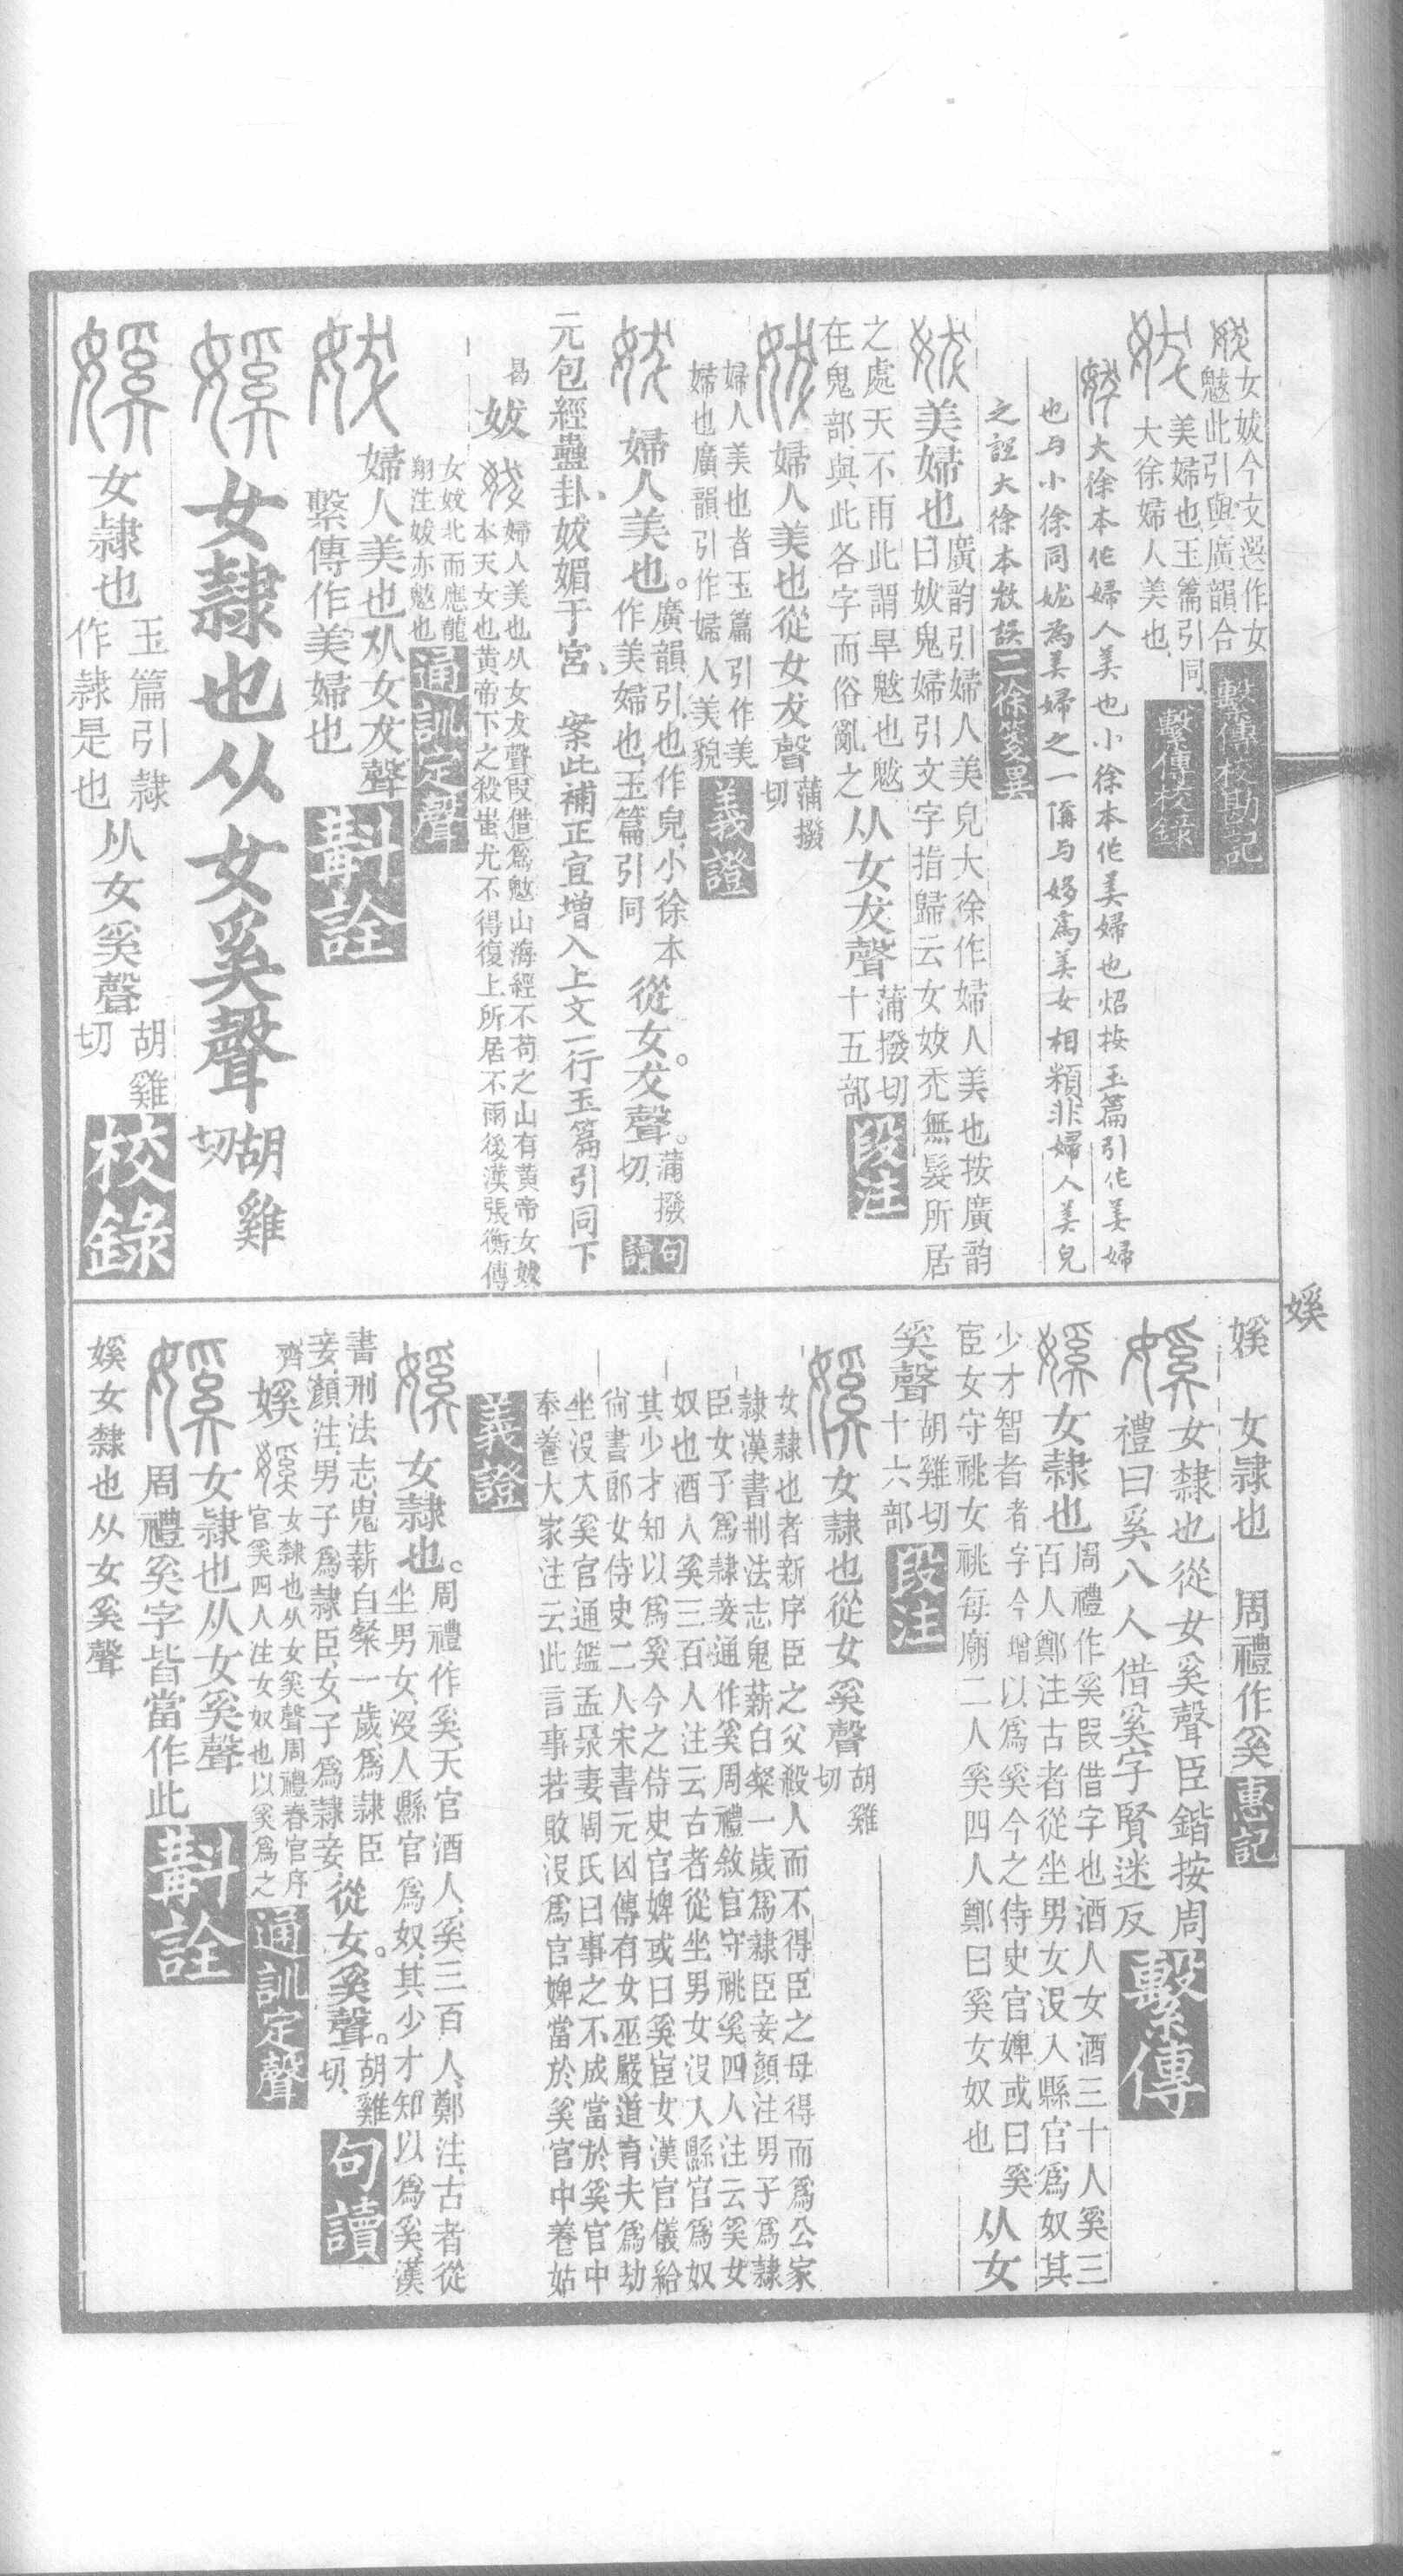 女妭今文選作女
魃此引與廣韻合
繫傳校勘記
美婦也玉篇引同
大徐婦人美也
繫傳校錄
大徐本作婦人美也小徐本作美婦也炤按玉篇引作美婦
也与小徐同妭為美婦之一偁与姼為美女相類非婦人美皃
之詚大徐本敚誤
二徐箋異
美婦也
廣韵引婦人美皃大徐作婦人美也按廣韵
曰妭鬼婦引文字指歸云女妭禿無髮所居
之處天不雨此謂旱魃也魃
在鬼部與此各字而俗亂之
从女犮聲
蒲撥切
十五部
段注
婦人美也從女犮聲
蒲撥
切
婦人美也者玉篇引作美
婦也廣韻引作婦人美貌
義證
婦人美也。
廣韻引也作皃小徐本
作美婦也玉篇引同
從女。犮聲。
蒲撥
切
句讀
元包經蠱卦妭媚于宮 案此補正宜增入上文一行玉篇引同下
曷 妭
婦人美也从女犮聲叚借爲魃山海經不苟之山有黃帝女妭
本天女也黃帝下之殺蚩尤不得復上所居不雨後漢張衡傳
女妭北而應龍
翔注妭亦魃也
通訓定聲
婦人美也从女犮聲
繫傳作美婦也
斠詮
女隸也从女奚聲
胡雞
切
女隸也
玉篇引隸
作隷是也
从女奚聲
胡雞
切
校錄
媟
媟 女隸也 周禮作奚
惠記
女隸也從女奚聲臣鍇按周
禮曰奚八人借奚字賢迷反
繫傳
女隸也
周禮作奚叚借字也酒人女酒三十人奚三
百人鄭注古者從坐男女沒入縣官爲奴其
少才智者者字今增以爲奚今之侍史官婢或曰奚
宦女守祧女祧每廟二人奚四人鄭曰奚女奴也
从女
奚聲
胡雞切
十六部
段注
女隸也從女奚聲
胡雞
切
女隸也者新序臣之父殺人而不得臣之母得而爲公家
隸漢書刑法志鬼薪白粲一歲爲隸臣妾顏注男子爲隸
臣女子爲隸妾通作奚周禮敘官守祧奚四人注云奚女
奴也酒人奚三百人注云古者從坐男女沒入縣官爲奴
其少才知以爲奚今之侍史官婢或曰奚宦女漢官儀給
尙書郎女侍史二人宋書元凶傳有女巫嚴道育夫爲劫
坐沒入奚官通鑑孟㫤妻周氏曰事之不成當於奚官中
奉養大家注云此言事若敗沒爲官婢當於奚官中養姑
義證
女隸也。
周禮作奚天官酒人奚三百人鄭注古者從
坐男女沒人縣官爲奴其少才知以爲奚漢
書刑法志鬼薪白粲一歲爲隸臣
妾顏注男子爲隸臣女子爲隸妾
從女。奚聲。
胡雞
切
句讀
齊 媟
女隸也从女奚聲周禮春官序
官奚四人注女奴也以奚爲之
通訓定聲
女隸也从女奚聲
周禮奚字皆當作此
斠詮
媟女隸也从女奚聲